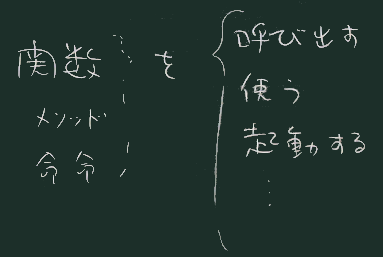 関数 を
メソッド
命令
呼び出す
使う
起動する
⋮